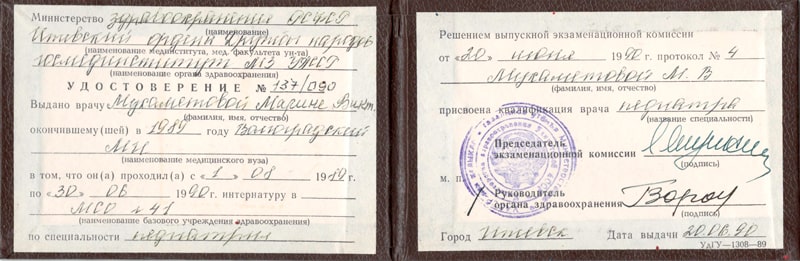 Министерство здравоохранения РСФСР
Ижевский ордена Дружбы народов
(наименование мединститута, мед. факультета ун-та)
госмединститут МЗ РСФСР
(наименование органа здравоохранения)
УДОСТОВЕРЕНИЕ № 137/090
Выдано врачу Мухаметовой Марине Викт.
(фамилия, имя, отчество)
окончившему(шей) в 1989 году Волгоградский
МИ
(наименование медицинского вуза)
в том, что он(а) проходил(а) с «1» 08 1989 г.
по «30» 06 1990 г. интернатуру в
МСО № 41
(наименование базового учреждения здравоохранения)
по специальности педиатрия
Решением выпускной экзаменационной комиссии
от «20» июня 1990 г. протокол № 4
Мухаметовой М. В
(фамилия, имя, отчество)
присвоена квалификация врача педиатра
(название специальности)
Председатель
экзаменационной комиссии
(подпись)
м. п.
Руководитель
органа здравоохранения
(подпись)
Город Ижевск Дата выдачи 20.06.90
УдГУ—1308—89